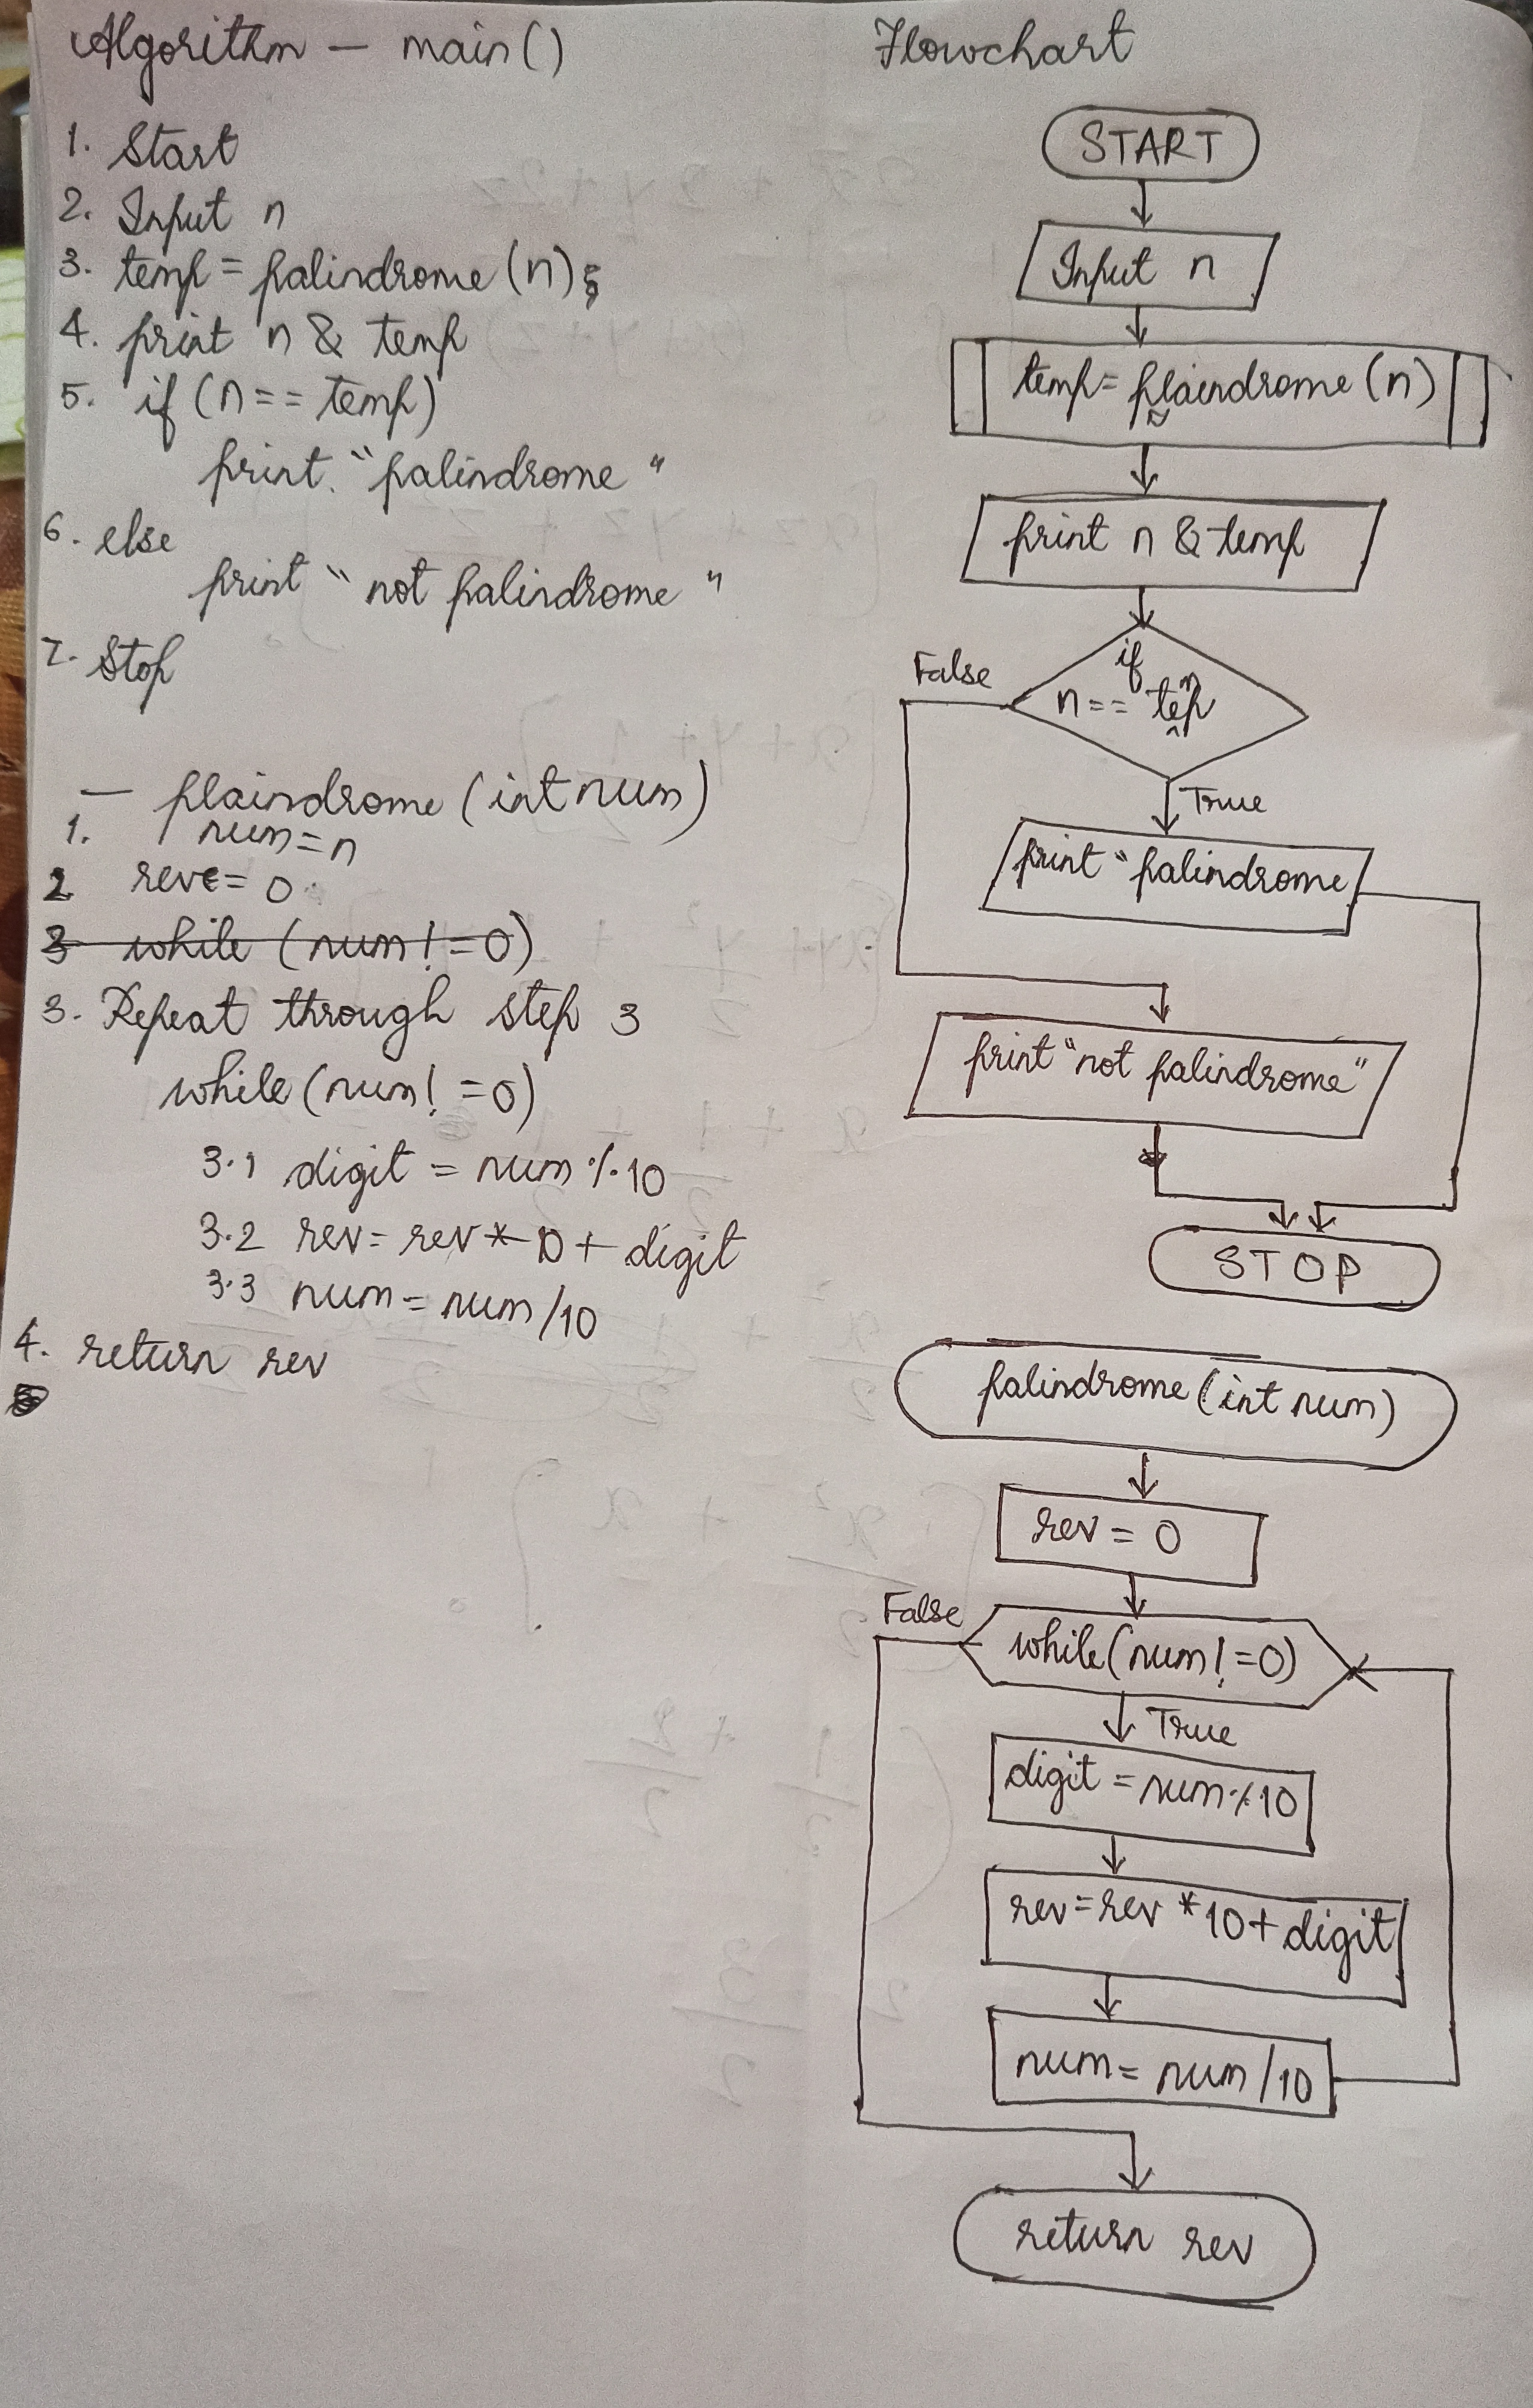 Algorithm — main()
1. Start
2. Input n
3. temp = palindrome (n);
4. print n & temp
5. if (n == temp)
print "palindrome"
6. else
print "not palindrome"
7. Stop
— plaindrome (int num)
1. num = n
2 reve = 0
3 while (num! = 0)
3. Repeat through step 3
while (num! = 0)
3.1 digit = num % 10
3.2 rev = rev * 10 + digit
3.3 num = num /10
4. return rev
Flowchart
START
Input n
temp = plaindrome (n)
print n & temp
if
n == temp
False
True
print "palindrome
print "not palindrome"
STOP
palindrome (int num)
rev = 0
False
while (num! = 0)
True
digit = num % 10
rev = rev * 10 + digit
num = num /10
return rev